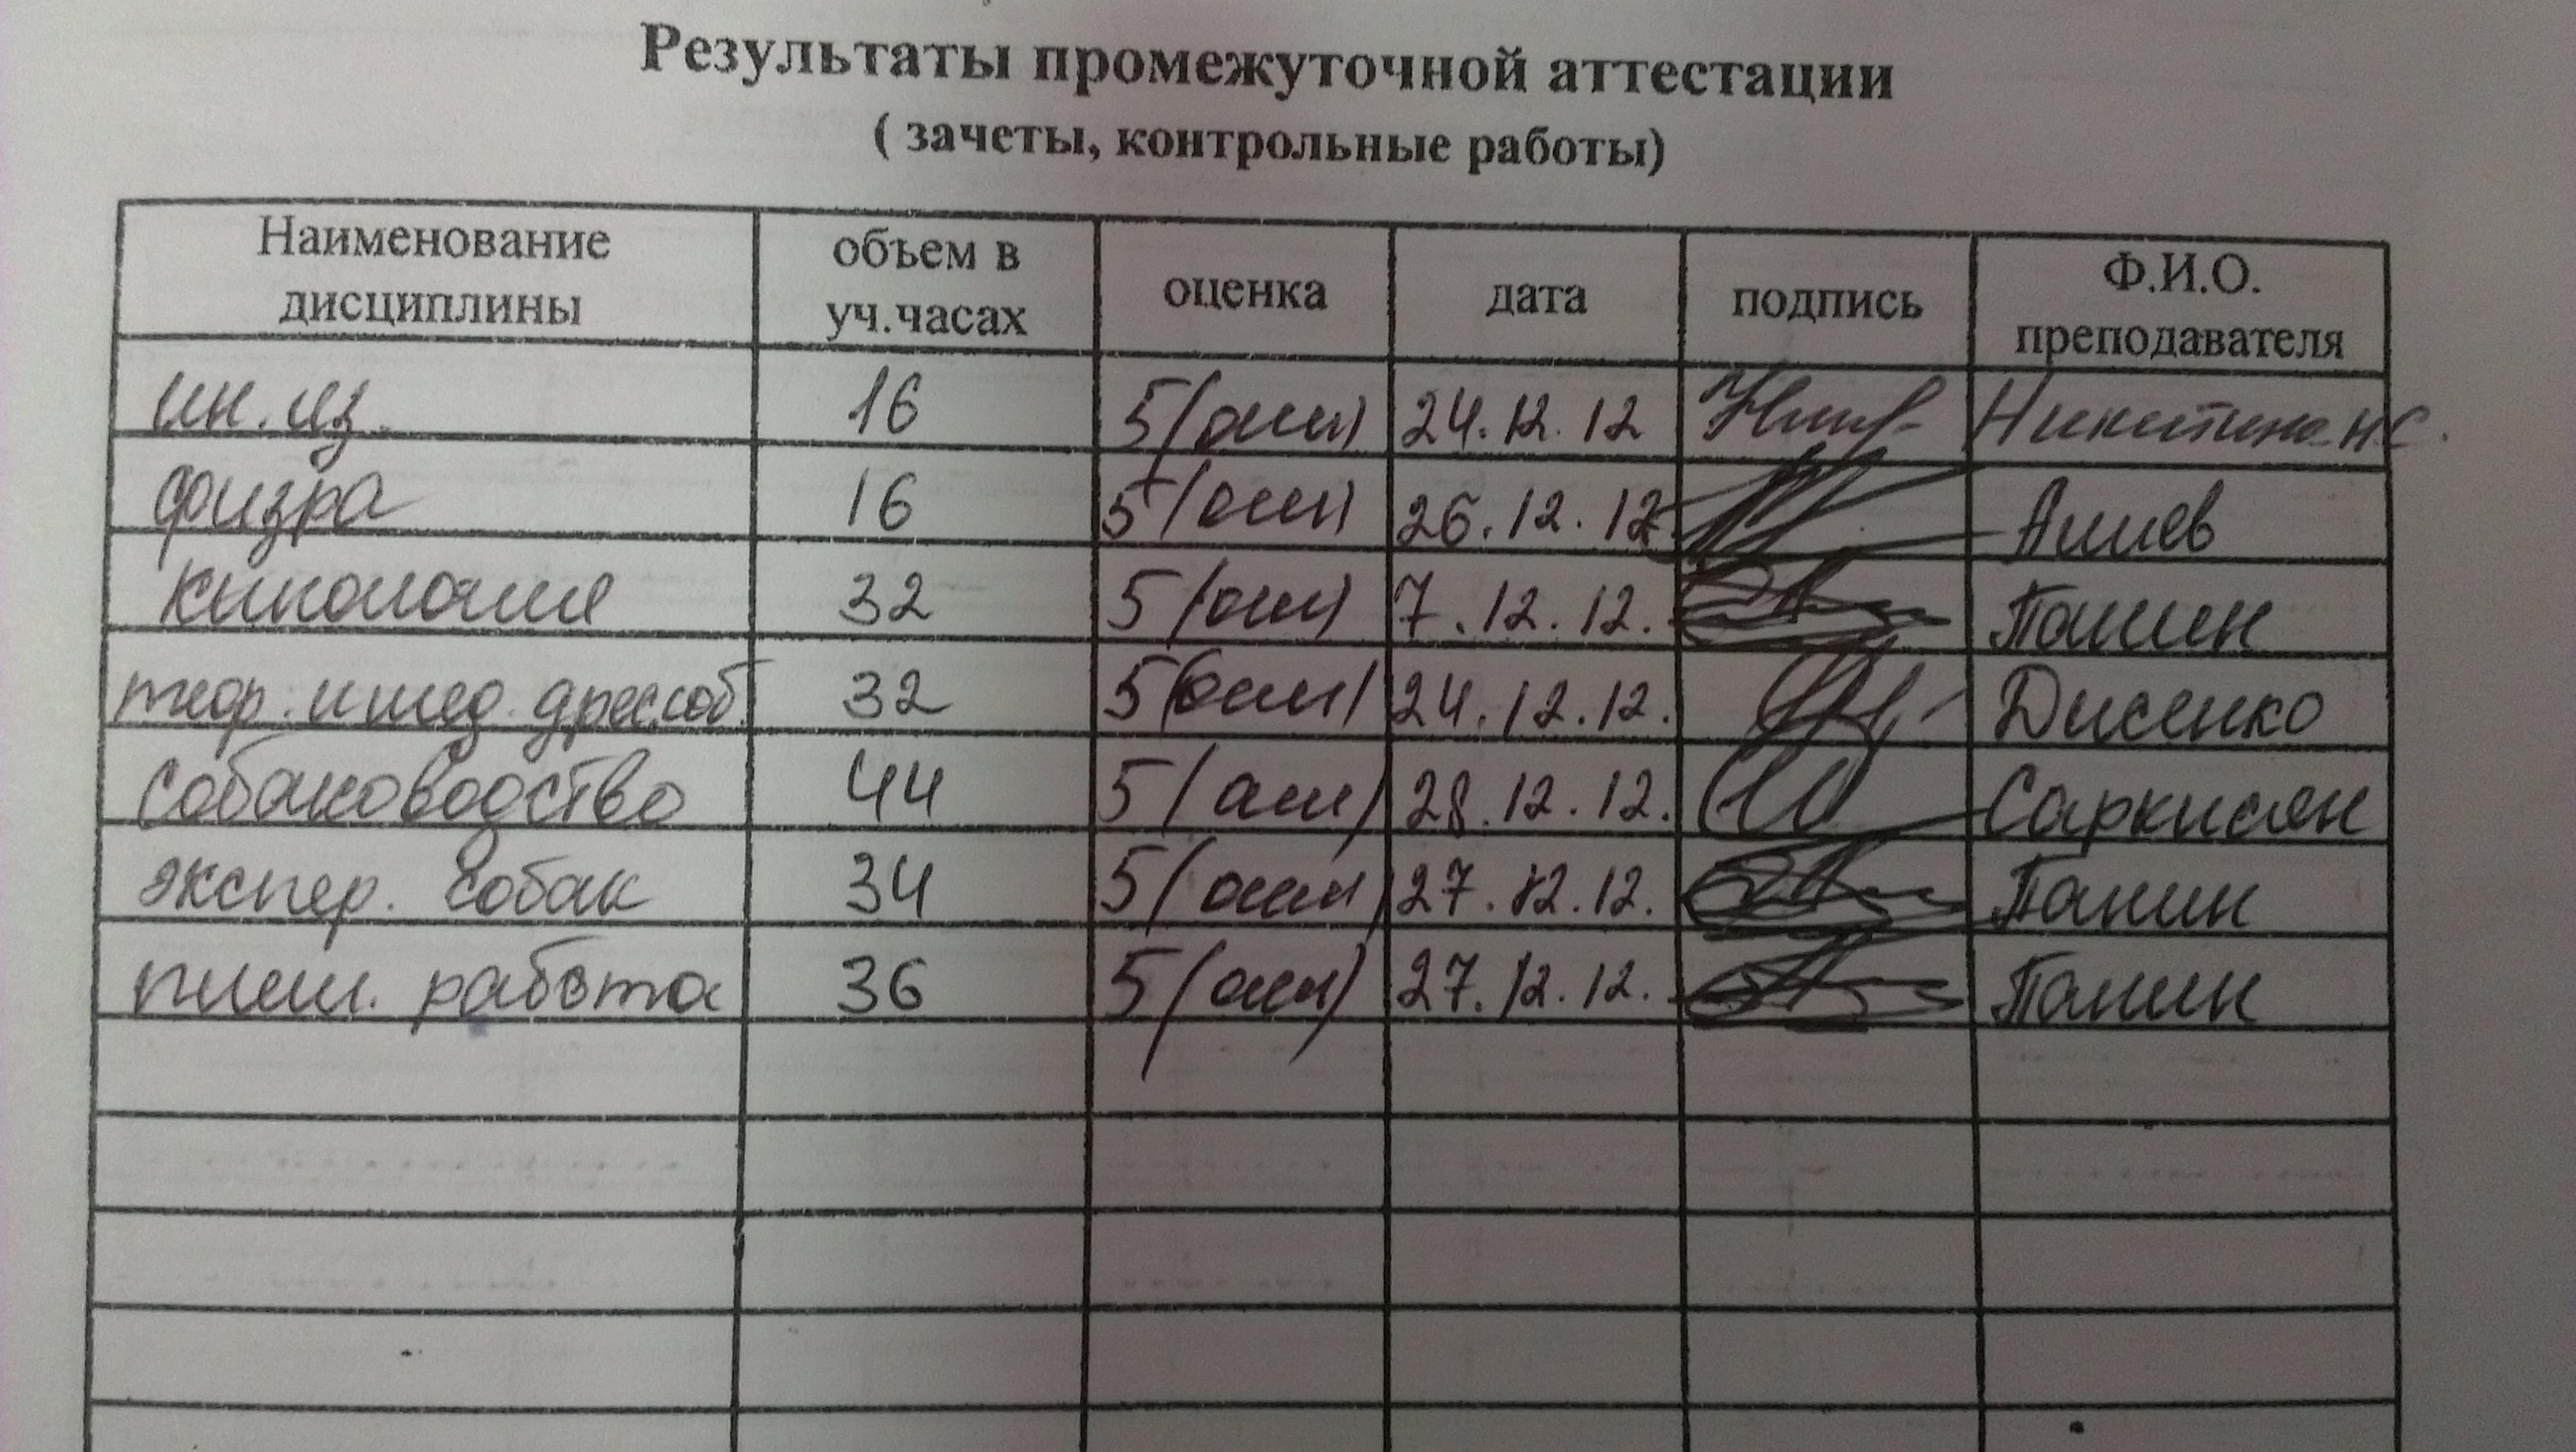 Результаты промежуточной аттестации
( зачеты, контрольные работы)
Наименование дисциплины объем в уч.часах оценка дата подпись Ф.И.О. преподавателя
ин. яз. 16 5 (отл) 24.12.12 Никитина Н.С.
физра 16 5 (отл) 26.12.12 Алиев
кинология 32 5 (отл) 7.12.12. Панин
теор. и мед. дрес.соб. 32 5 (отл) 24.12.12. Дисенко
собаководство 44 5 (отл) 28.12.12. Саркисян
экспер. собак 34 5 (отл) 27.12.12. Панин
плем. работа 36 5 (отл) 27.12.12. Панин